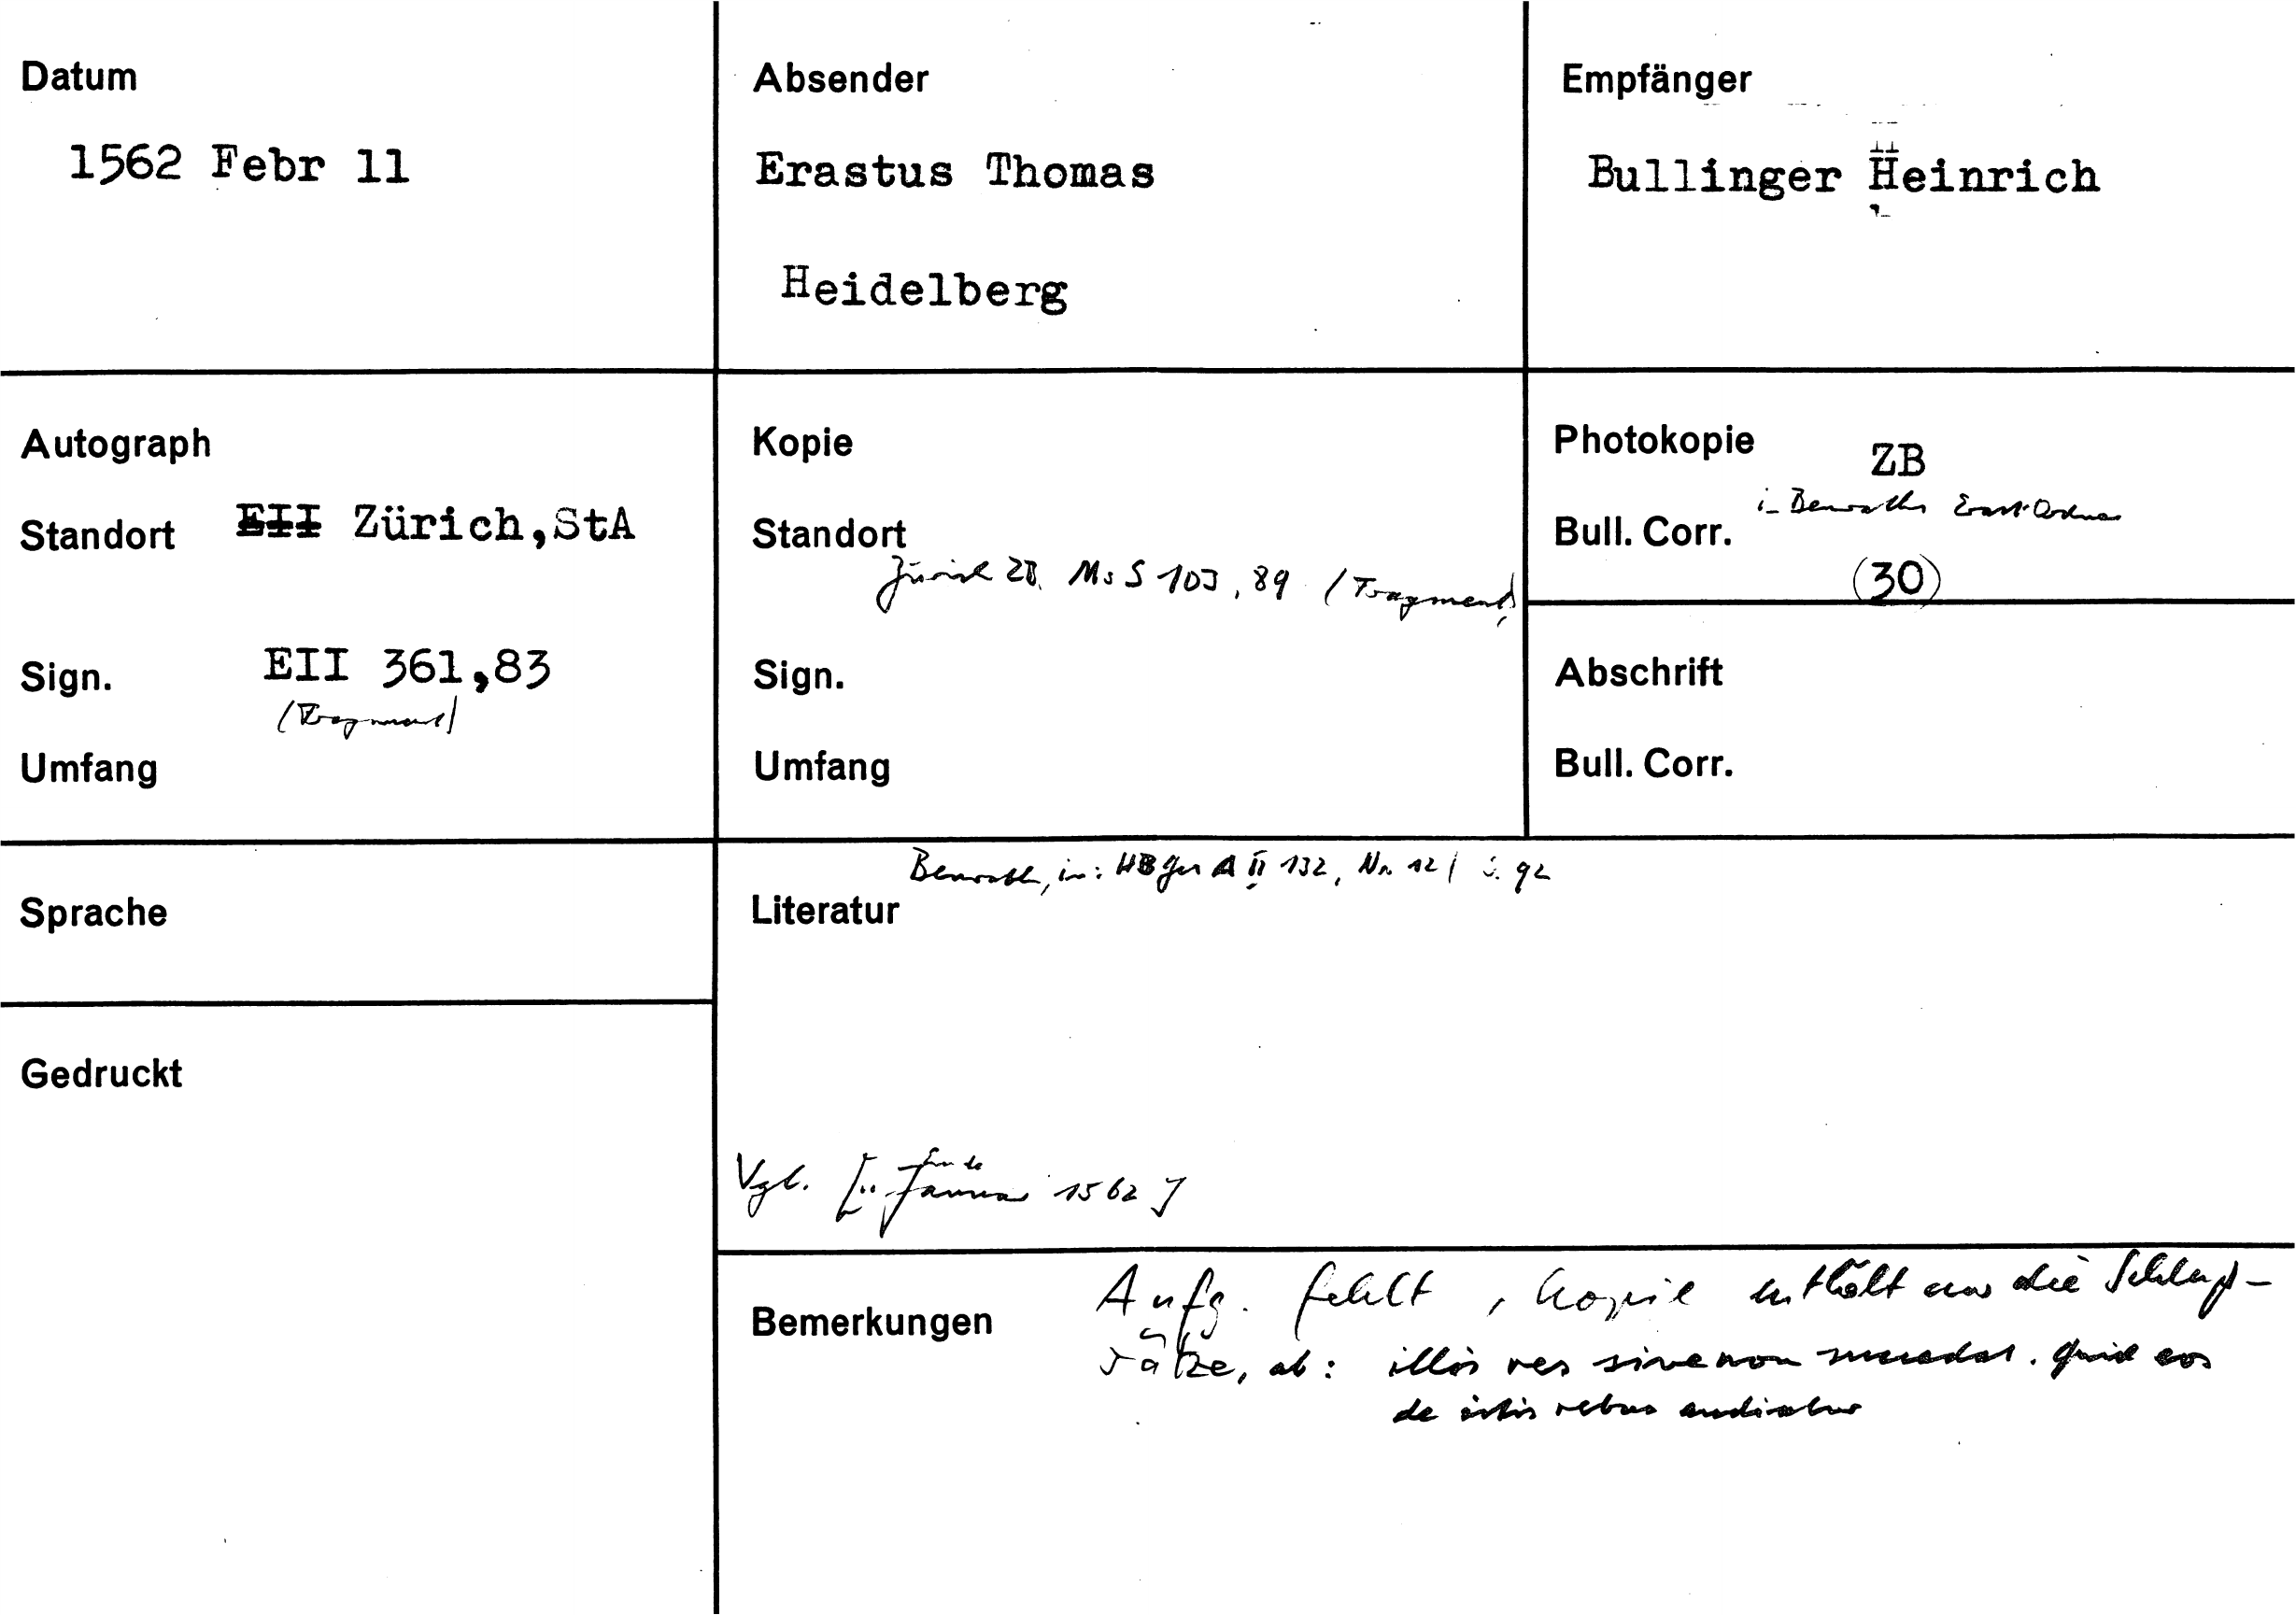 Datum
1562 Febr 11
Absender
Erastus Thomas
Heidelberg
Empfänger
Bullinger Heinrich
Autograph
Standort EII Zürich,StA
Sign. EII 361,83
(Fragment)
Umfang
Kopie
Standort
Zürich ZB. Ms S 103, 89 (Fragment)
Sign.
Umfang
Photokopie ZB
i. Benraths Erast-Ordner
Bull. Corr.
(30)
Abschrift
Bull. Corr.
Sprache
Literatur
Benrath, in: HBGes A II 132, Nr. 12 / S. 92
Gedruckt
Ende
Vgl. [ Januar 1562]
Bemerkungen Anfg. fehlt, Kopie enthält nur die Schluß-
sätze, ab: illis res sive non
de istis rebus